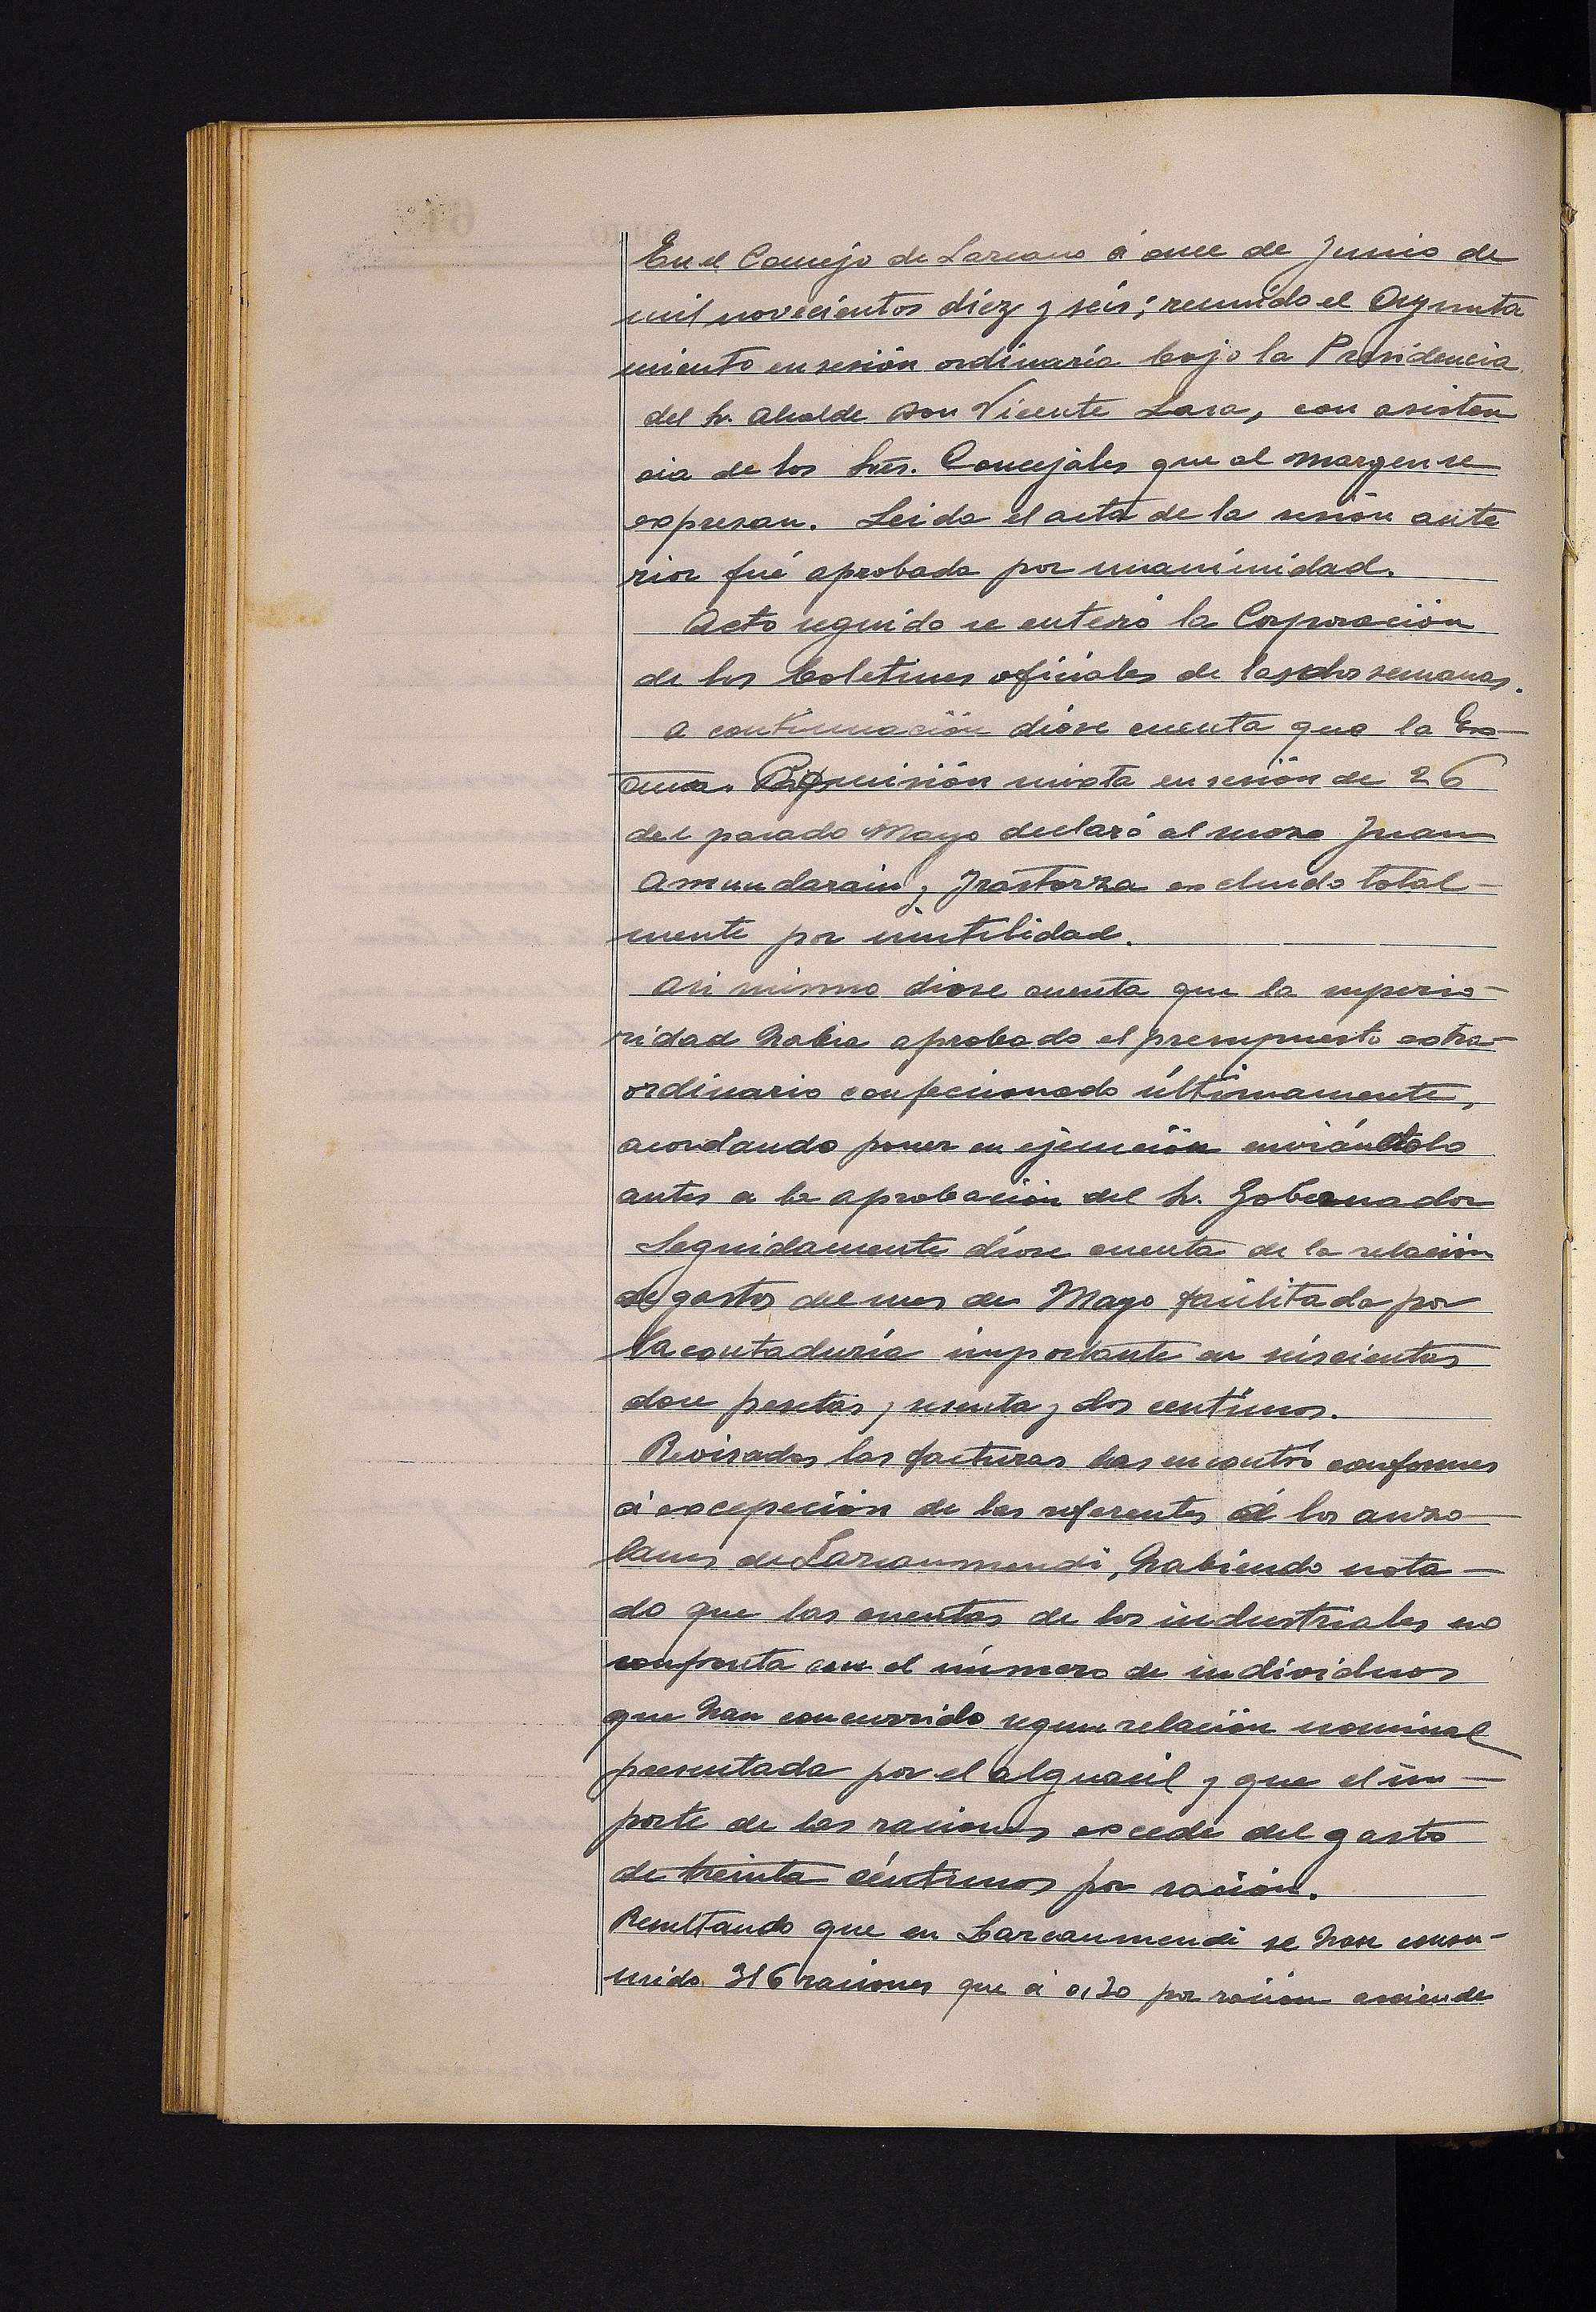 En el Concejo de Lazcano á once de Junio de
mil novecientos diez y seis; reunido el Ayunta
miento en sesión ordinaria bajo la Presidencia
del Sr. Alcalde Don Vicente Lasa, con asisten
cia de los Sres. Concejales que al margen se
expresan. Leida el acta de la sesión ante
rior fué aprobada por unanimidad.
Acto seguido se enteró la Corporación
de los boletines oficiales de las dos semanas.
A continuación dióse cuenta que la Ex-
cma. Comisión mixta en sesión de 26
del pasado Mayo declaró al mozo Juan
Amundarain y Irastorza excluido total-
mente por inutilidad.
Asi mismo diose cuenta que la superio-
ridad habia aprobado el presupuesto extra-
ordinario confecionado últimamente,
acordando poner en ejecución enviándolo
antes a la aprobación del Sr. Gobernador
Seguidamente dióse cuenta de la relación
de gastos del mes de Mayo facilitada por
la contaduría importante en seiscientas
doce pesetas y sesenta y dos centimos.
Revisadas las facturas las encontró conformes
á excepeción de las referentes á los auzo-
lanes de Lazcaumendi, habiendo nota-
do que las cuentas de los industriales no
confronta con el número de individuos
que han concurrido segun relación nominal
presentada por el alguacil y que el im-
porte de las raciones excede del gasto
de treinta céntimos por ración.
Resultando que en Lazcaumendi se han consu-
mido 316 raciones que á 0,30 por ración asciende